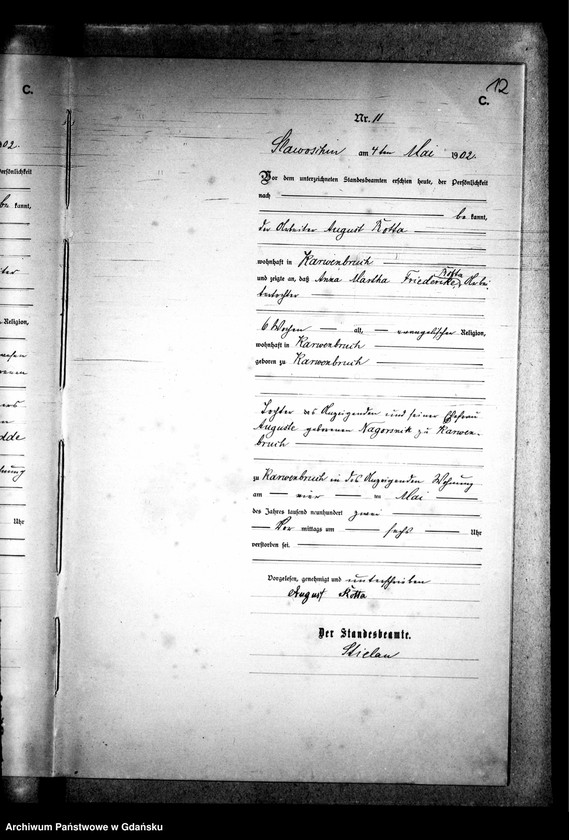 C.
02.
ersönlichkeit
be kannt,
ter
Religion,
dde
Uhr
12
C.
Nr. 11
Slawoschin am 4ten Mai 1902.
Vor dem unterzeichneten Standesbeamten erschien heute, der Persönlichkeit
nach
be kannt,
der Arbeiter August Kotta
wohnhaft in Karwenbruch
Kotta
und zeigte an, daß Anna Martha Friedericke, Arbei
tertochter
6 Wochen alt, evangelischer Religion,
wohnhaft in Karwenbruch
geboren zu Karwenbruch
Tochter des Anzeigenden und seiner Ehefrau
Auguste geborenen Nagorsnik zu Karwen-
bruch
zu Karwenbruch in des Anzeigenden Wohnung
am vier ten Mai
des Jahres tausend neunhundert zwei
Vor mittags um sechs Uhr
verstorben sei.
Vorgelesen, genehmigt und unterschrieben
August Kotta
Der Standesbeamte.
Stielau
Archiwum Państwowe w Gdańsku